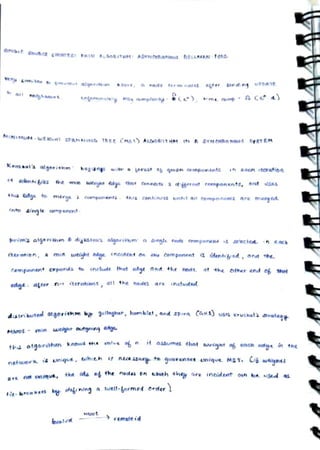 SINGLE SOURCE SHORTEST PATH ALGORITHM: ASYNCHRONOUS BELLMAN FORD
to previous algorithm above, a node terminates after sending update
to all neighbours. exponentially msg complexity time comp -
MINIMUM-WEIGHT SPANNING TREE (MST) ALGORITHM IN A SYNCHRONOUS SYSTEM
Kruskal's algorithm: begins with a forest of graph components. in each iteration
it identifies the min weight edge that connects 2 different components, and uses
this edge to merge 2 components. this continues until all components are merged
into single component.
prim's algorithm & dijkstra's algorithm: a single node component is selected. in each
iteration, a min weight edge incident on the component is identified, and the
component expands to include that edge and the node at the other end of that
edge. after n-1 iterations, all the nodes are included.
distributed algorithm by gallagher, humblet, and spira (GHS) uses kruskal's strategy.
- min weight outgoing edge
this algorithm knows the value of n. it assumes that weight of each edge in the
network is unique, which is necessary to guarantee unique MST. (if weights
are not unique, the ids of the nodes on which they are incident can be used as
tie-breakers by defining a well-formed order)